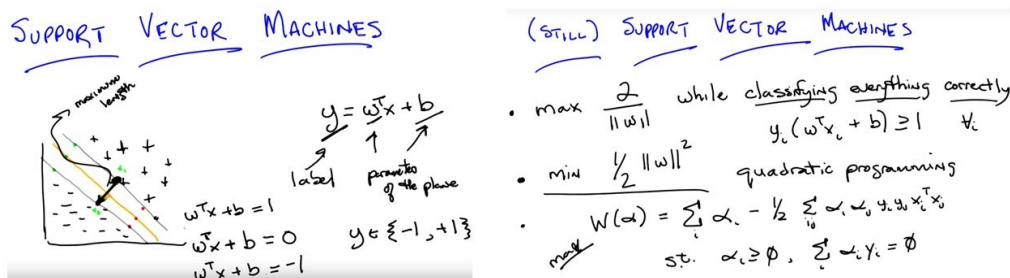 SUPPORT VECTOR MACHINES
maximum length
y = wᵀx + b
label
parameters of the plane
wᵀx + b = 1
wᵀx + b = 0
wᵀx + b = -1
y ∈ {-1, +1}
(STILL) SUPPORT VECTOR MACHINES
• max 2/||w|| while classifying everything correctly
yᵢ(wᵀxᵢ + b) ≥ 1 ∀ᵢ
• min 1/2 ||w||² quadratic programming
• max W(α) = Σᵢ αᵢ - 1/2 Σᵢⱼ αᵢ αⱼ yᵢ yⱼ xᵢᵀxⱼ
s.t. αᵢ ≥ 0, Σᵢ αᵢyᵢ = 0